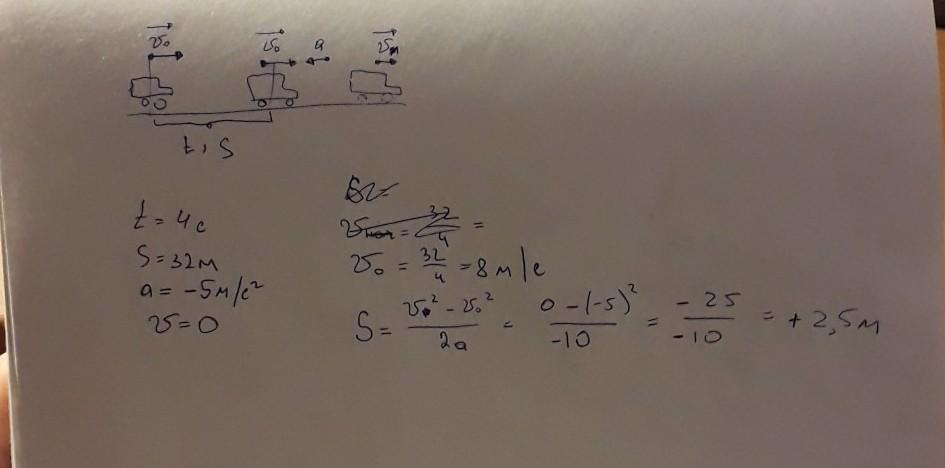 v₀ v₀ a v
t, S
t = 4с
S = 32м
a = -5м/с²
v = 0
v₀ = 32/4 = 8 м/с
S = (v² - v₀²)/2a = (0 - (-5)²)/-10 = -25/-10 = +2,5м